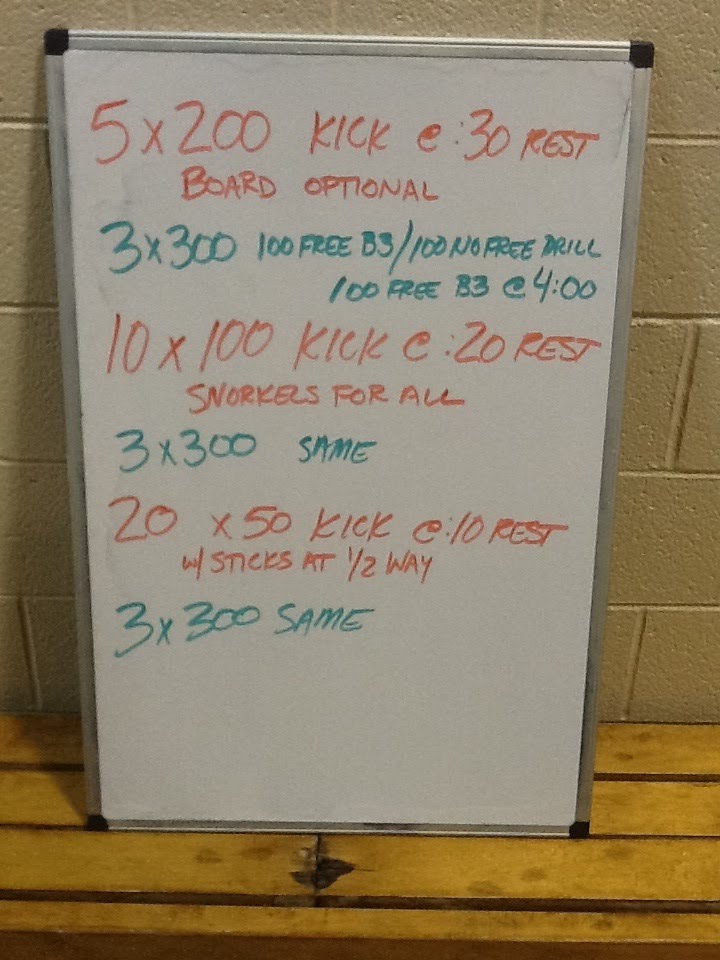 5 x 200 KICK @ :30 REST
BOARD OPTIONAL
3 x 300 100 FREE B3/100 NO FREE DRILL
100 FREE B3 @ 4:00
10 x 100 KICK @ :20 REST
SNORKELS FOR ALL
3 x 300 SAME
20 x 50 KICK @ :10 REST
w/ STICKS AT 1/2 WAY
3 x 300 SAME